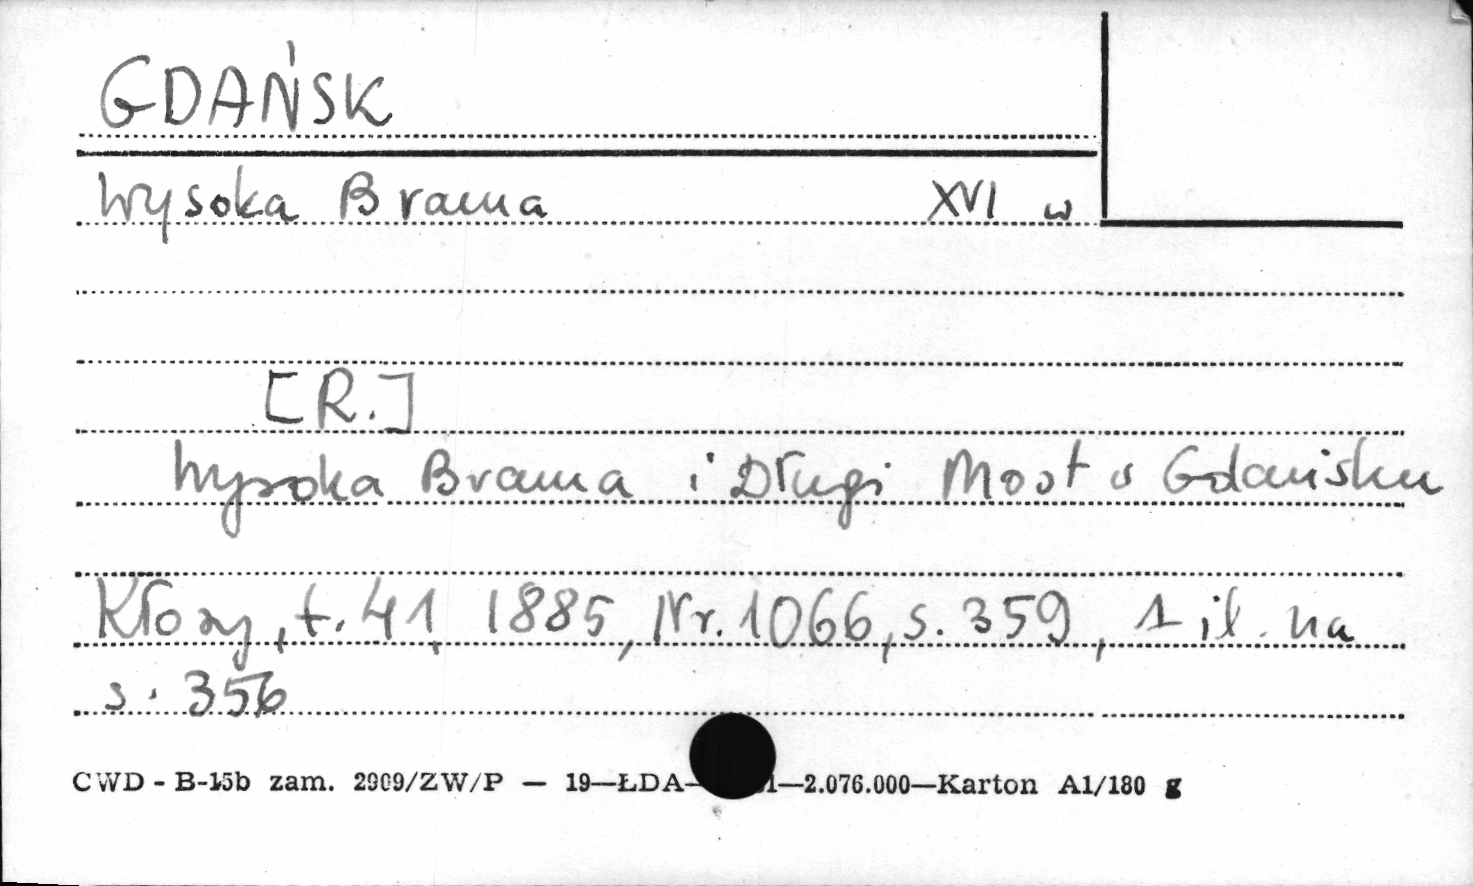 GDAŃSK
Wysoka Brama XVI w
[R.]
Wysoka Brama i Długi Most w Gdańsku
Kłosy, t. 41, 1885, Nr. 1066, s. 359, 1 il. na
s. 356
CWD - B-15b zam. 2909/ZW/P — 19—ŁDA— 1—2.076.000—Karton A1/180 g